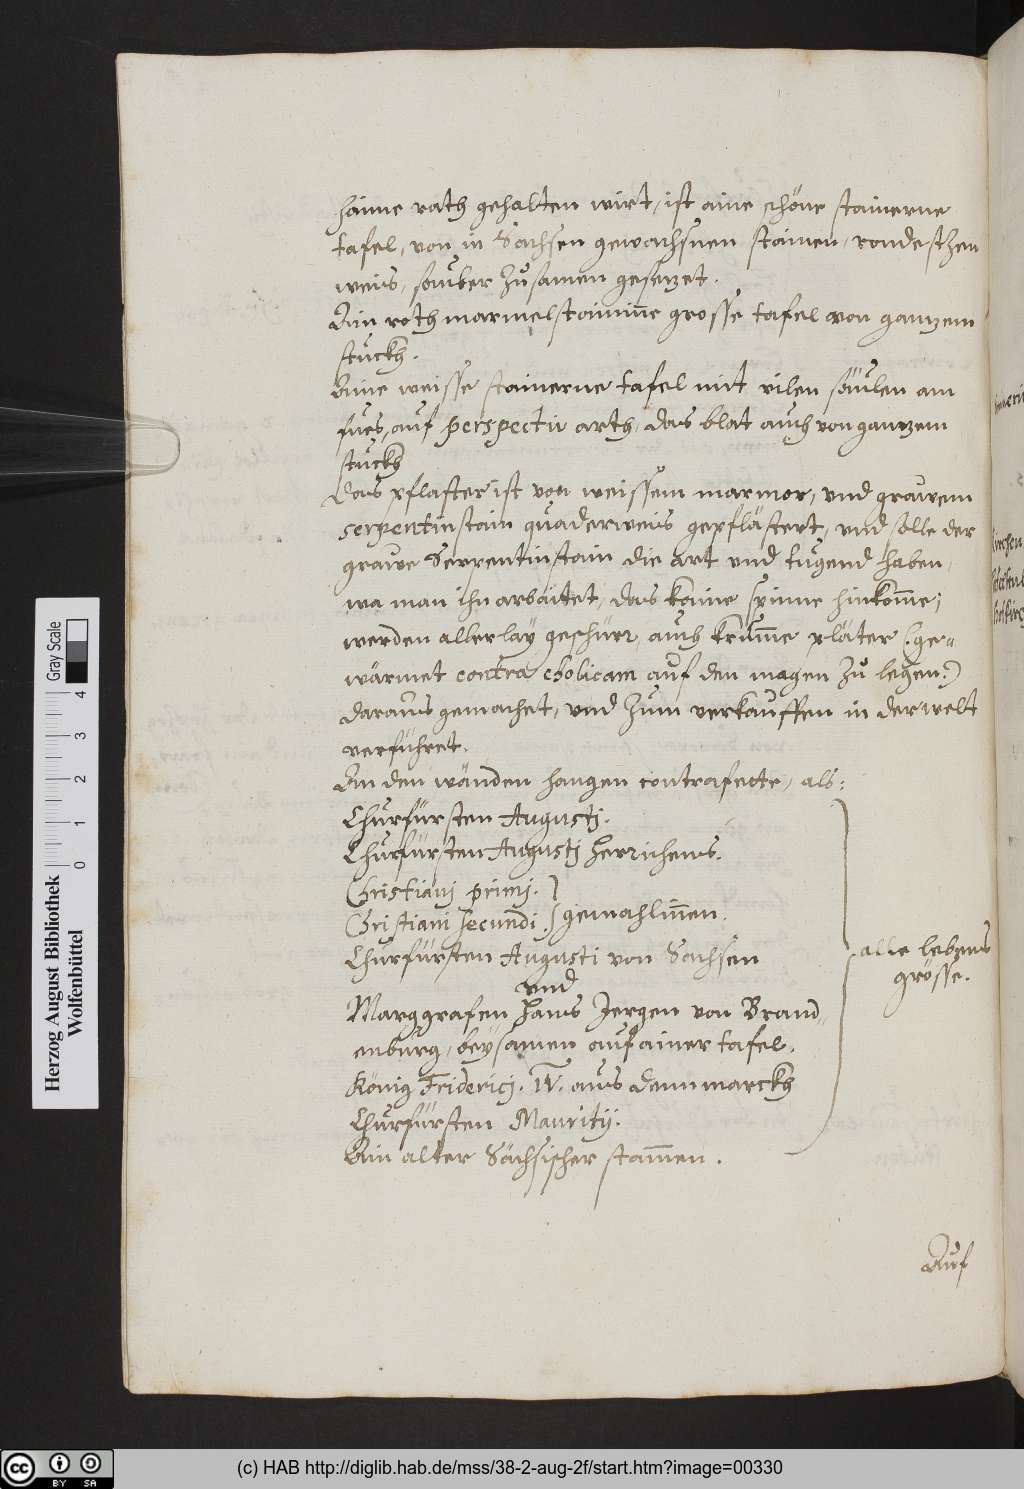 haime rath gehalten wirt, ist aine schöne stainerne
tafel, von in Sachsen gewachsnen stainen, rondeschen
weis, sauber zusamen gesetzet.
Ain roth marmelstaininne grosse tafel von gantzem
stuckh.
Aine weisse stainerne tafel mit vilen säulen am
fues, auf perspectiv arth, das blat auch von gantzem
stuckh
Das pflaster ist von weissem marmor, vnd grawem
serpentinstain quaderweis gepflästert, vnd solle der
grawe Serpentinstain die art vnd tugend haben,
wa man ihn arbaitet, das kaine spinne hinkom̄e;
werden allerlaÿ geschürr, auch krum̄e pläter (ge=
wärmet contra cholicam auf den magen zu legen:)
daraus gemachet, vnd zum verkauffen in der welt
verführet.
An den wänden hangen contrafette, als:
Churfürsten Augustj.
Churfürsten Augustj herrichens.
Christianj primj.
Christiani secundi. gemahlin̄en.
Churfürsten Augusti von Sachsen
vnd
Marggrafen Hans Jergen von Brand=
enburg, beÿsamen auf ainer tafel.
König Friderici. IV. aus dennmarckh
Churfürsten Mauritÿ.
Ain alter Sächsischer stam̄en.
alle lebens
grösse.
Auf
Herzog August Bibliothek
Wolfenbüttel
Gray Scale
0 1 2 3 4
cc BY SA
(c) HAB http://diglib.hab.de/mss/38-2-aug-2f/start.htm?image=00330